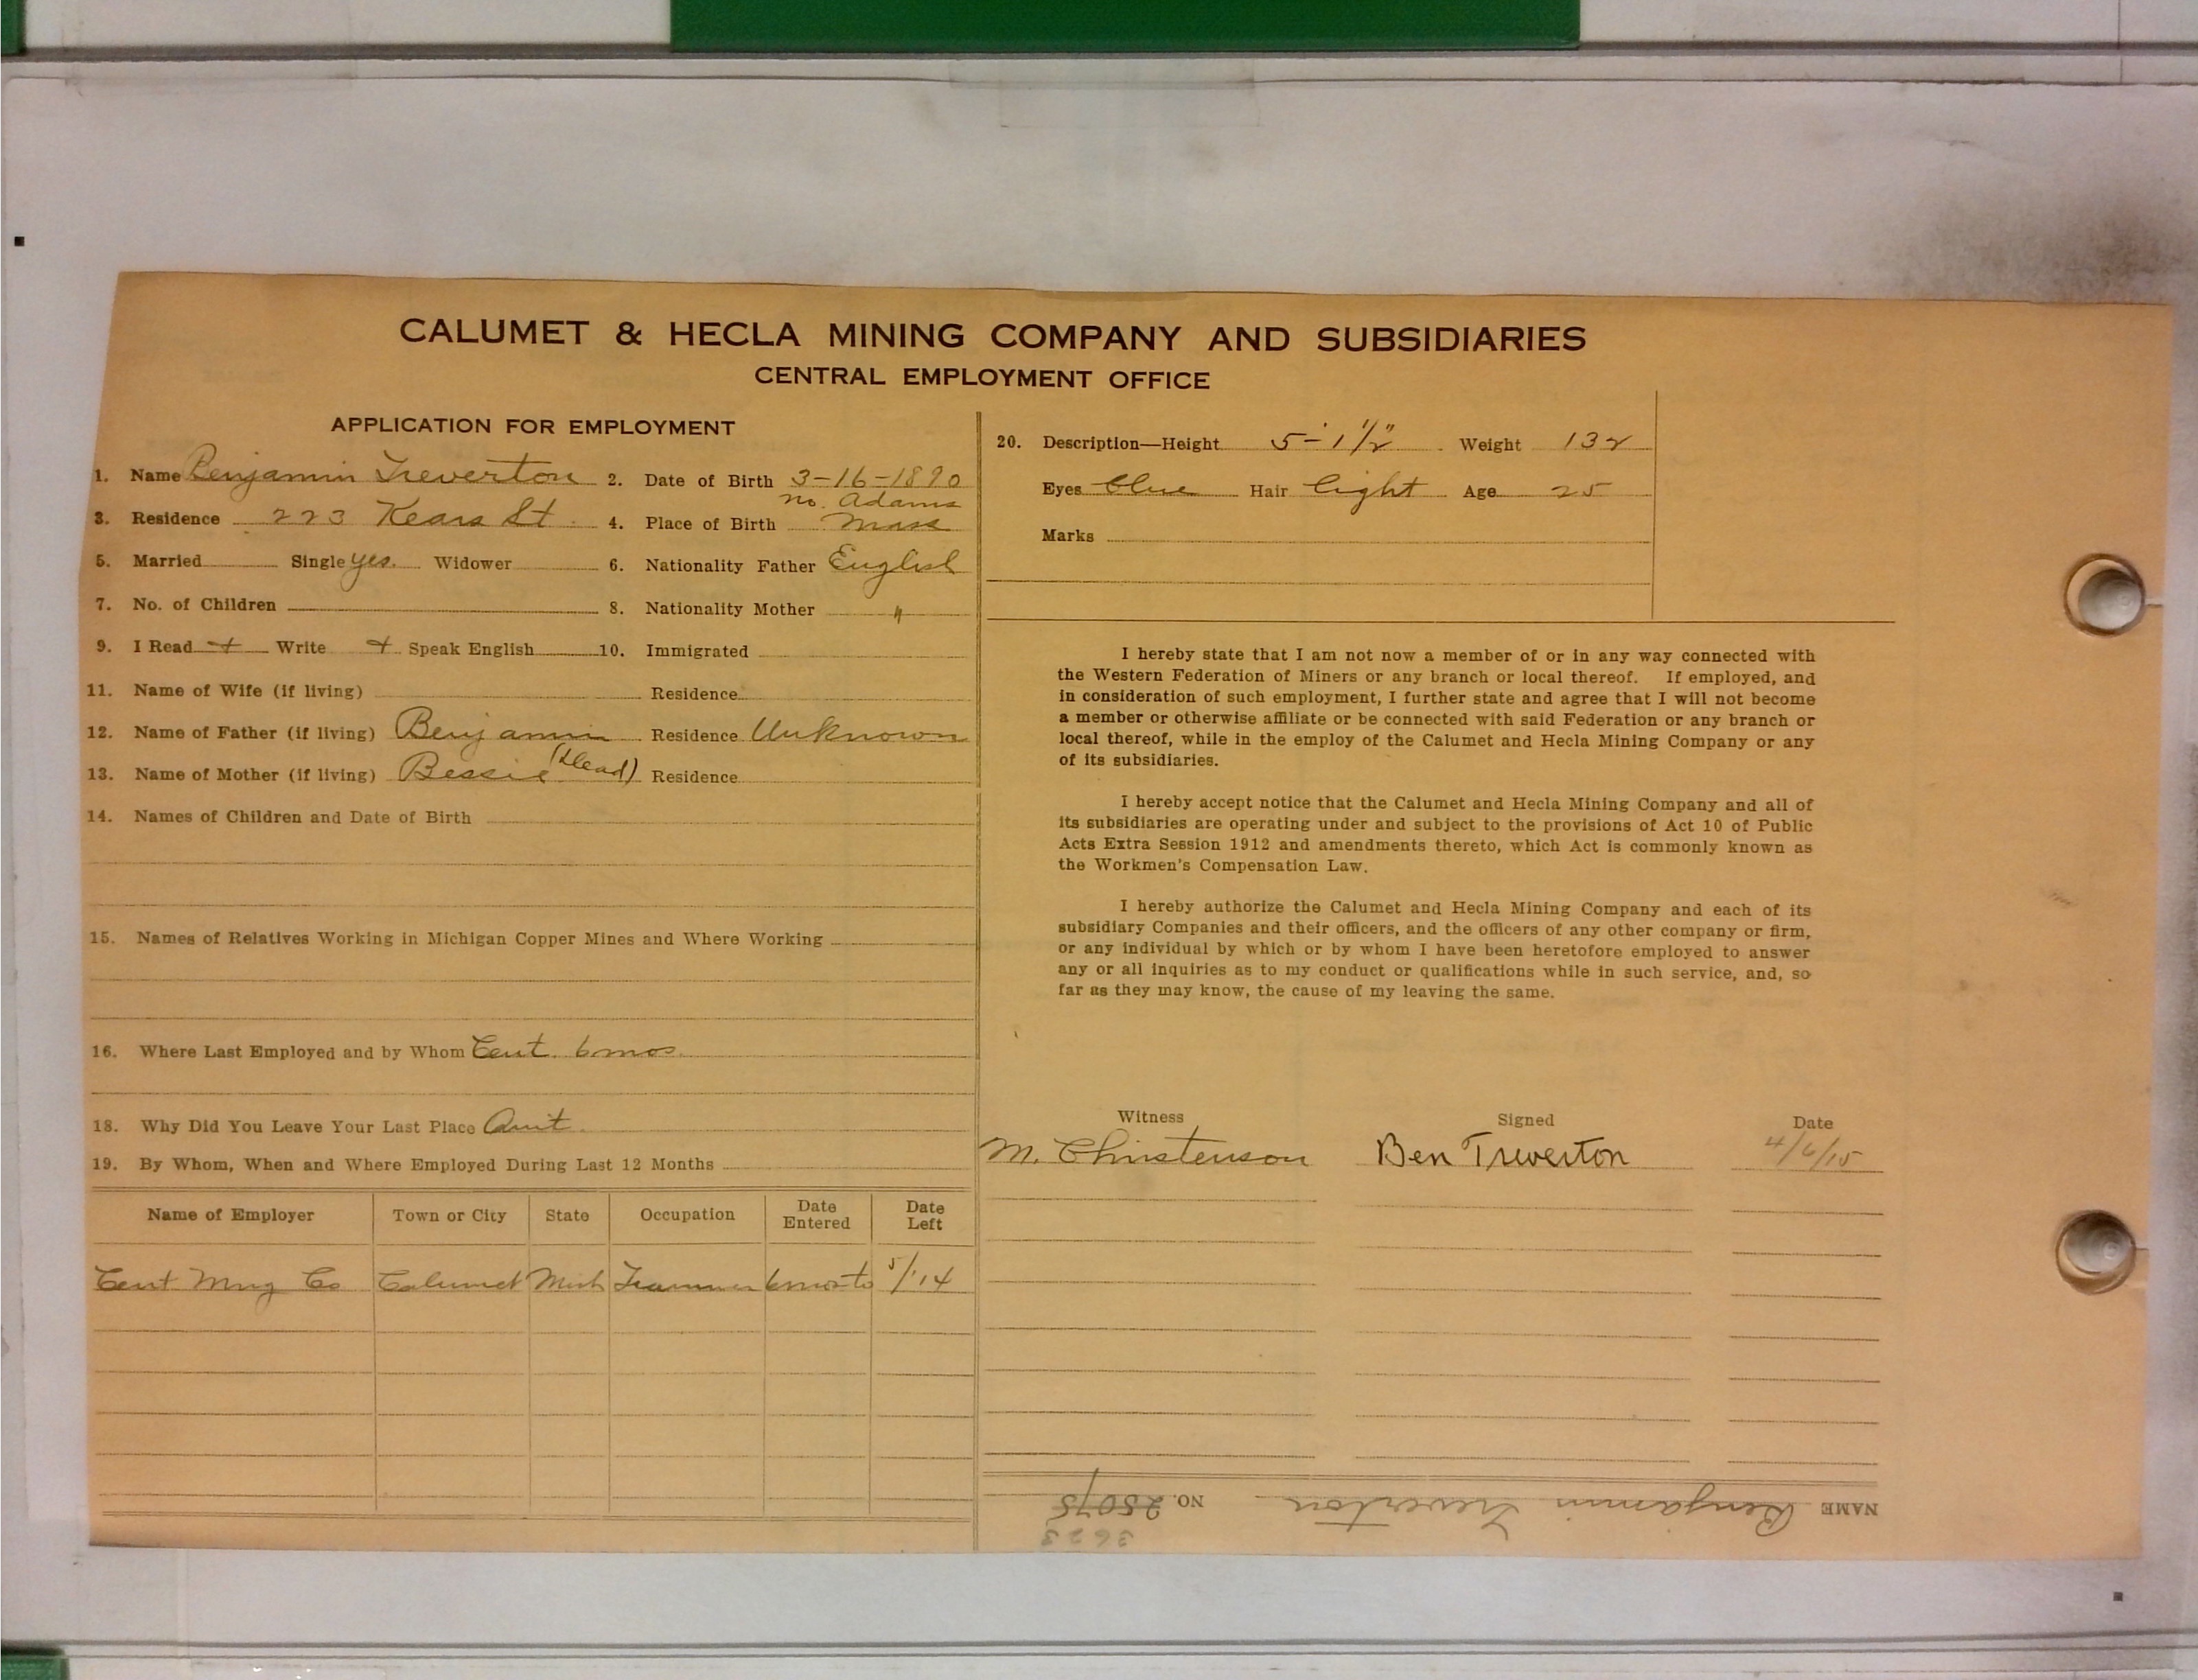 CALUMET & HECLA MINING COMPANY AND SUBSIDIARIES
CENTRAL EMPLOYMENT OFFICE
APPLICATION FOR EMPLOYMENT
1. Name Benjamin Treverton 2. Date of Birth 3-16-1890
3. Residence 223 Kears St. 4. Place of Birth no. Adams Mass
5. Married Single yes. Widower 6. Nationality Father English
7. No. of Children 8. Nationality Mother "
9. I Read + Write + Speak English 10. Immigrated
11. Name of Wife (if living) Residence
12. Name of Father (if living) Benjamin Residence Unknown
13. Name of Mother (if living) Bessie (Dead) Residence
14. Names of Children and Date of Birth
15. Names of Relatives Working in Michigan Copper Mines and Where Working
16. Where Last Employed and by Whom Cent. 6 mos.
18. Why Did You Leave Your Last Place Quit.
19. By Whom, When and Where Employed During Last 12 Months
Name of Employer Town or City State Occupation Date Entered Date Left
Cent Mng Co Calumet Mich Trammer 6 mos to 5/'14
20. Description—Height 5'-1 1/2" Weight 132
Eyes blue Hair light Age 25
Marks
I hereby state that I am not now a member of or in any way connected with
the Western Federation of Miners or any branch or local thereof. If employed, and
in consideration of such employment, I further state and agree that I will not become
a member or otherwise affiliate or be connected with said Federation or any branch or
local thereof, while in the employ of the Calumet and Hecla Mining Company or any
of its subsidiaries.
I hereby accept notice that the Calumet and Hecla Mining Company and all of
its subsidiaries are operating under and subject to the provisions of Act 10 of Public
Acts Extra Session 1912 and amendments thereto, which Act is commonly known as
the Workmen's Compensation Law.
I hereby authorize the Calumet and Hecla Mining Company and each of its
subsidiary Companies and their officers, and the officers of any other company or firm,
or any individual by which or by whom I have been heretofore employed to answer
any or all inquiries as to my conduct or qualifications while in such service, and, so
far as they may know, the cause of my leaving the same.
Witness Signed Date
M. Christenson Ben Treverton 4/6/15
NAME Benjamin Treverton NO. 25075
3623